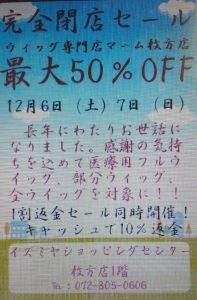 完全閉店セール
ウィッグ専門店マーム枚方店
最大50%OFF
12月6日（土）7日（日）
長年にわたりお世話に
なりました。感謝の気持
ちを込めて医療用フルウ
イッグ、部分ウィッグ、
全ウィッグを対象に！！
1割返金セール同時開催！
キャッシュで10%返金
イズミヤショッピングセンター
枚方店1階
TEL：072-805-0606